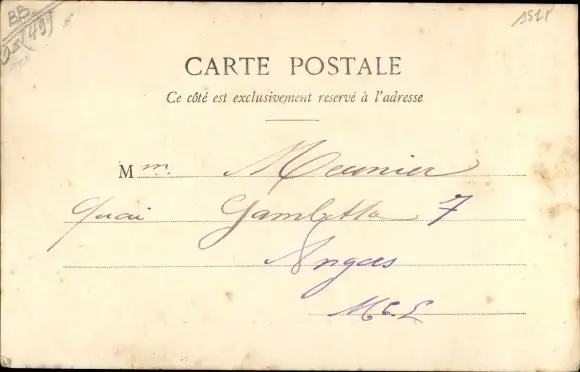 BB
(49)
1528
CARTE POSTALE
Ce côté est exclusivement reservé à l'adresse
Mm. Meunier
Quai Gambetta 7
Angers
M&L